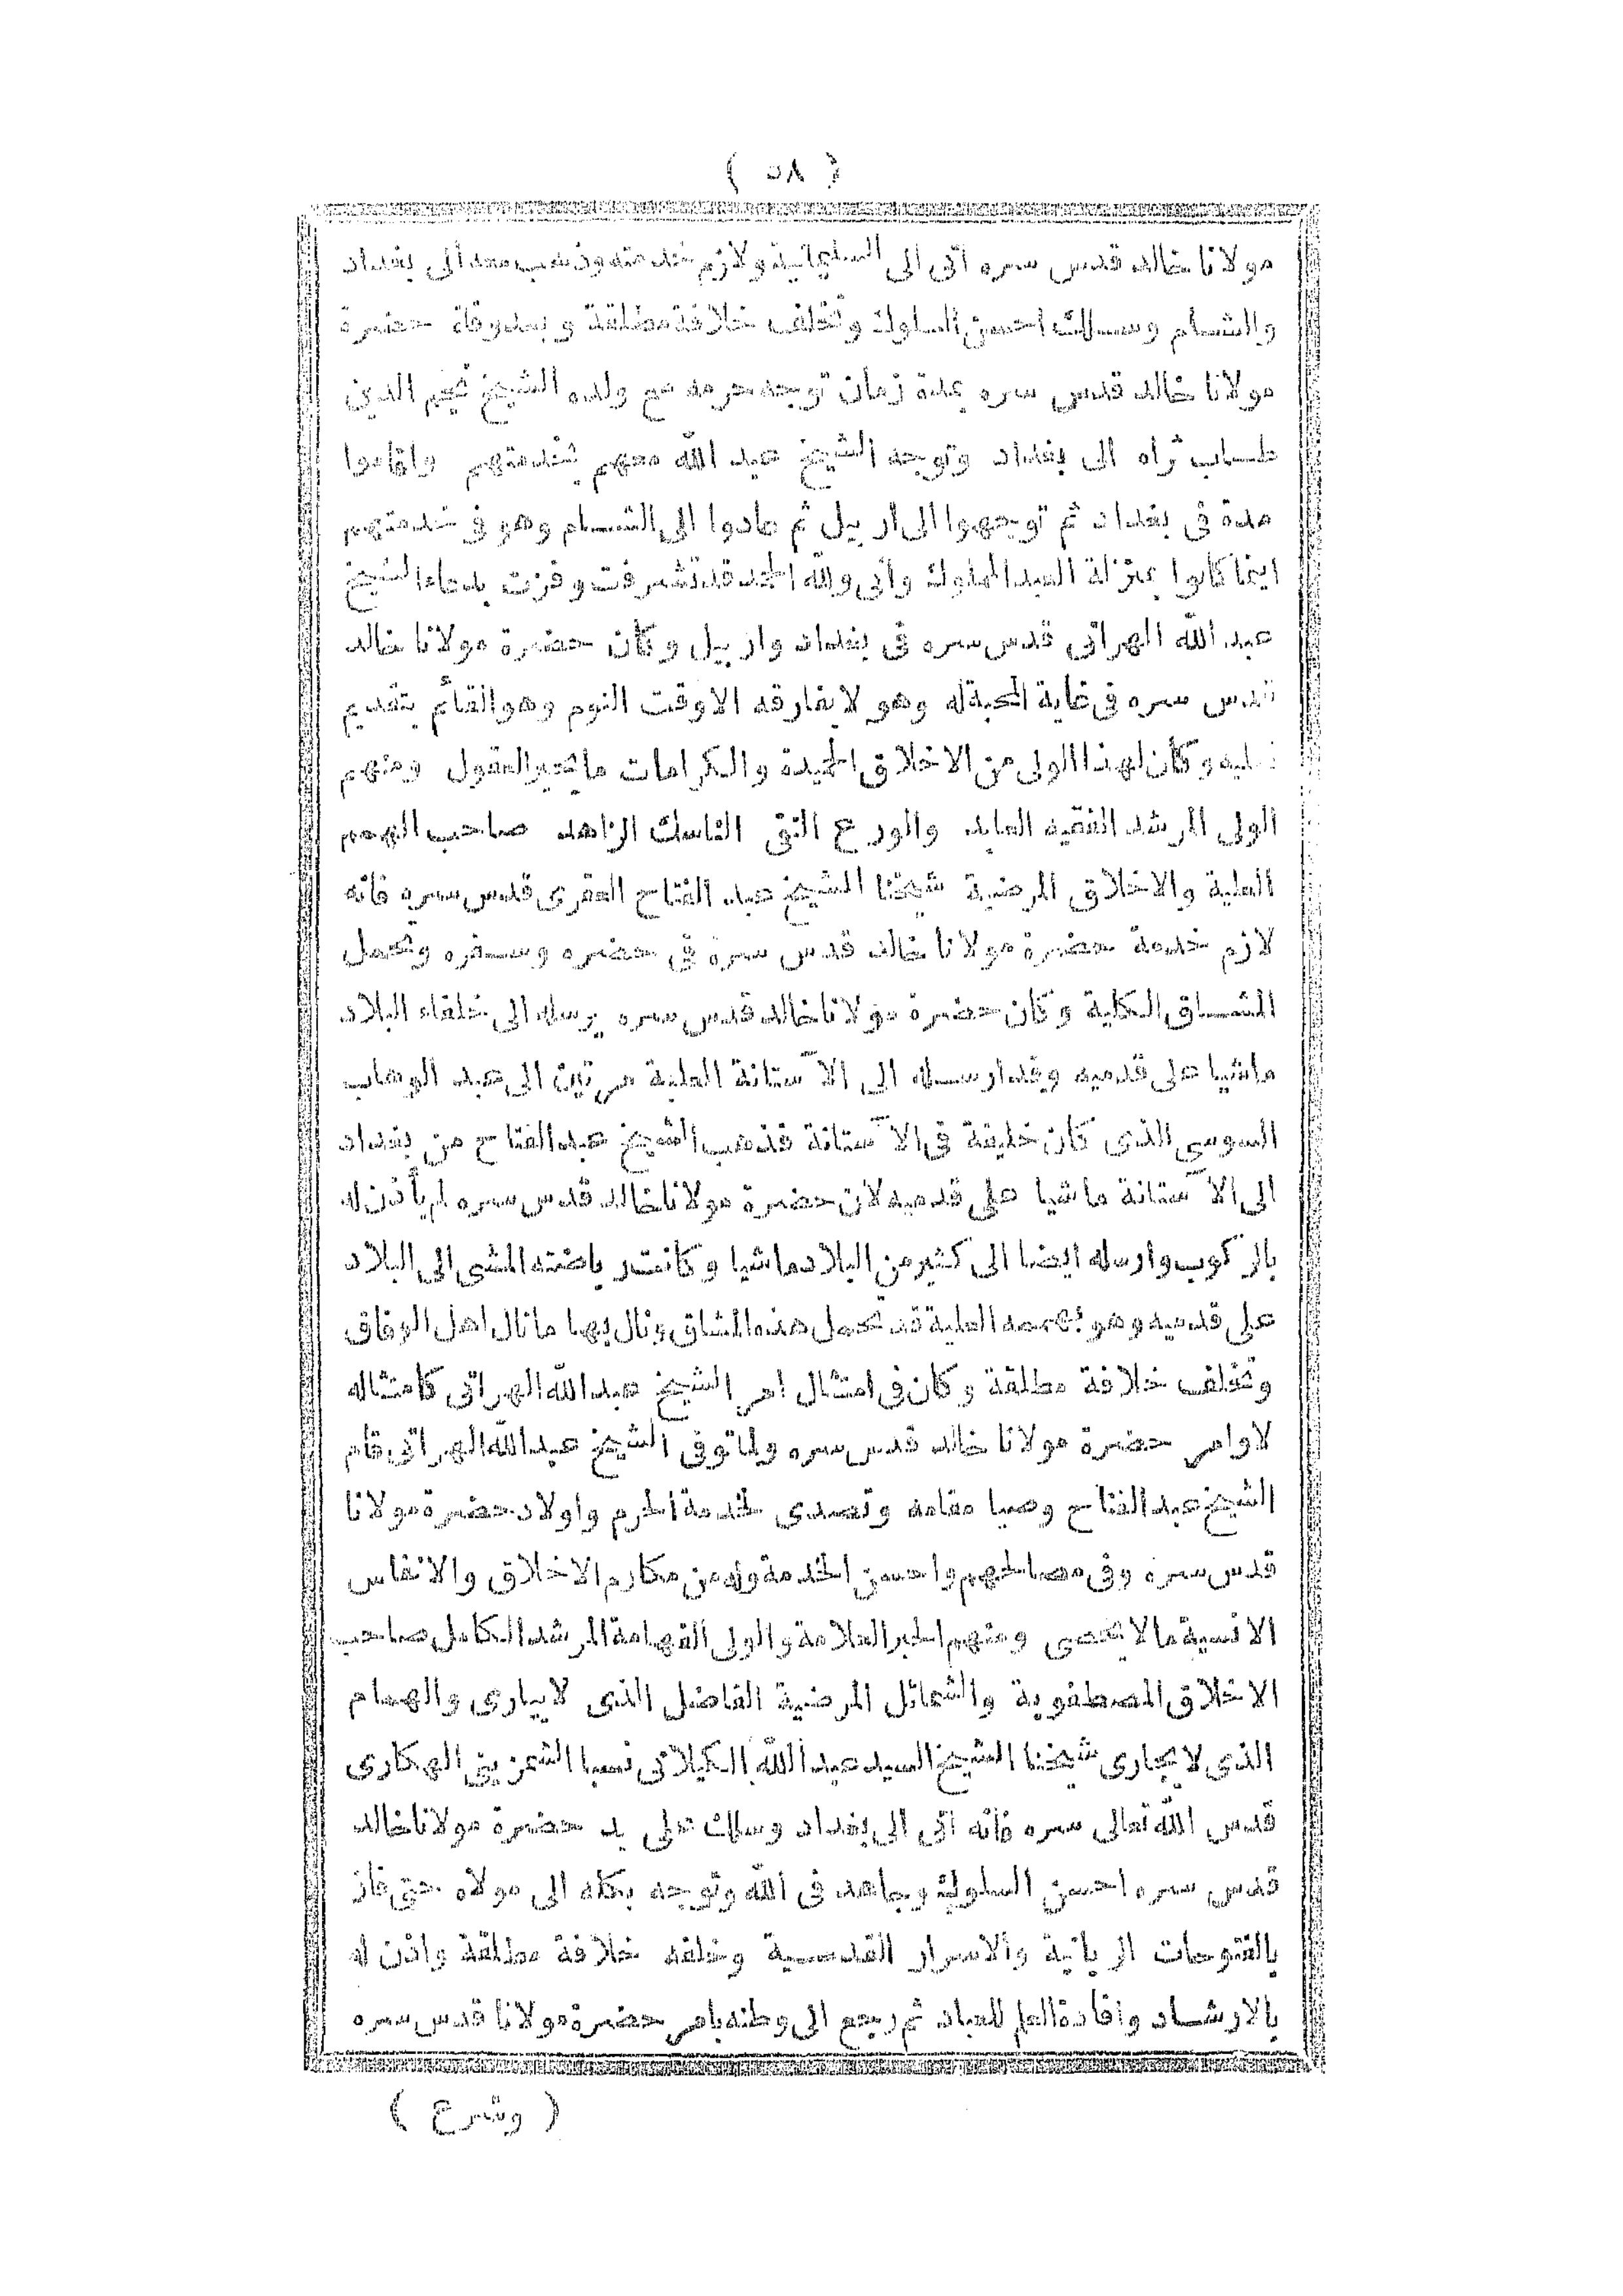 ( ٥٨ )
مولانا خالد قدس سره اتى الى السليمانية ولازم خدمته وذهب معه الى بغداد
والشام وسلك احسن السلوك وتخلف خلافة مطلقة و بعد وفاة حضرة
مولانا خالد قدس سره بمدة زمان توجه حرمه مع ولده الشيخ نجم الدين
طاب ثراه الى بغداد وتوجه الشيخ عبد الله معهم بخدمتهم واقاموا
مدة فى بغداد ثم توجهوا الى اربيل ثم عادوا الى الشام وهو فى خدمتهم
اينما كانوا بمنزلة العبد المملوك وانى ولله الحمد قد تشرفت وفزت بدعاء الشيخ
عبد الله الهراتى قدس سره فى بغداد واربيل وكان حضرة مولانا خالد
قدس سره فى غاية المحبة له وهو لا يفارقه الا وقت النوم وهو القائم بتقديم
نعليه وكان لهذا الولى من الاخلاق الحميدة والكرامات ما يحير العقول ومنهم
الولى المرشد الفقيه العابد والورع التقى الناسك الزاهد صاحب الهمم
العلية والاخلاق المرضية شيخنا الشيخ عبد الفتاح العقرى قدس سره فانه
لازم خدمة حضرة مولانا خالد قدس سره فى حضره وسفره وتحمل
المشاق الكلية وكان حضرة مولانا خالد قدس سره يرسله الى خلفاء البلاد
ماشيا على قدميه وقد ارسله الى الآستانة العلية مرتين الى عبد الوهاب
السوسى الذى كان خليفة فى الآستانة فذهب الشيخ عبد الفتاح من بغداد
الى الآستانة ماشيا على قدميه لان حضرة مولانا خالد قدس سره لم يأذن له
بالركوب وارسله ايضا الى كثير من البلاد ماشيا وكانت رياضته المشى الى البلاد
على قدميه وهو بهممه العلية قد تحمل هذه المشاق ونال بها ما نال اهل الوفاق
وتخلف خلافة مطلقة وكان فى امتثال امر الشيخ عبد الله الهراتى كامتثاله
لاوامر حضرة مولانا خالد قدس سره ولما توفى الشيخ عبد الله الهراتى قام
الشيخ عبد الفتاح وصيا مقامه وتصدى لخدمة الحرم واولاد حضرة مولانا
قدس سره وفى مصالحهم واحسن الخدمة وله من مكارم الاخلاق والانفاس
الانسية ما لا يحصى ومنهم الحبر العلامة والولى الفهامة المرشد الكامل صاحب
الاخلاق المصطفوية والشمائل المرضية الفاضل الذى لا يبارى والهمام
الذى لا يجارى شيخنا الشيخ السيد عبد الله الكيلانى نسبا الشمزينى الهكارى
قدس الله تعالى سره فانه اتى الى بغداد وسلك على يد حضرة مولانا خالد
قدس سره احسن السلوك وجاهد فى الله وتوجه بكله الى مولاه حتى فاز
بالفتوحات الربانية والاسرار القدسية وخلفه خلافة مطلقة واذن له
بالارشاد وافادة العلم للعباد ثم رجع الى وطنه بامر حضرة مولانا قدس سره
( وشرع )